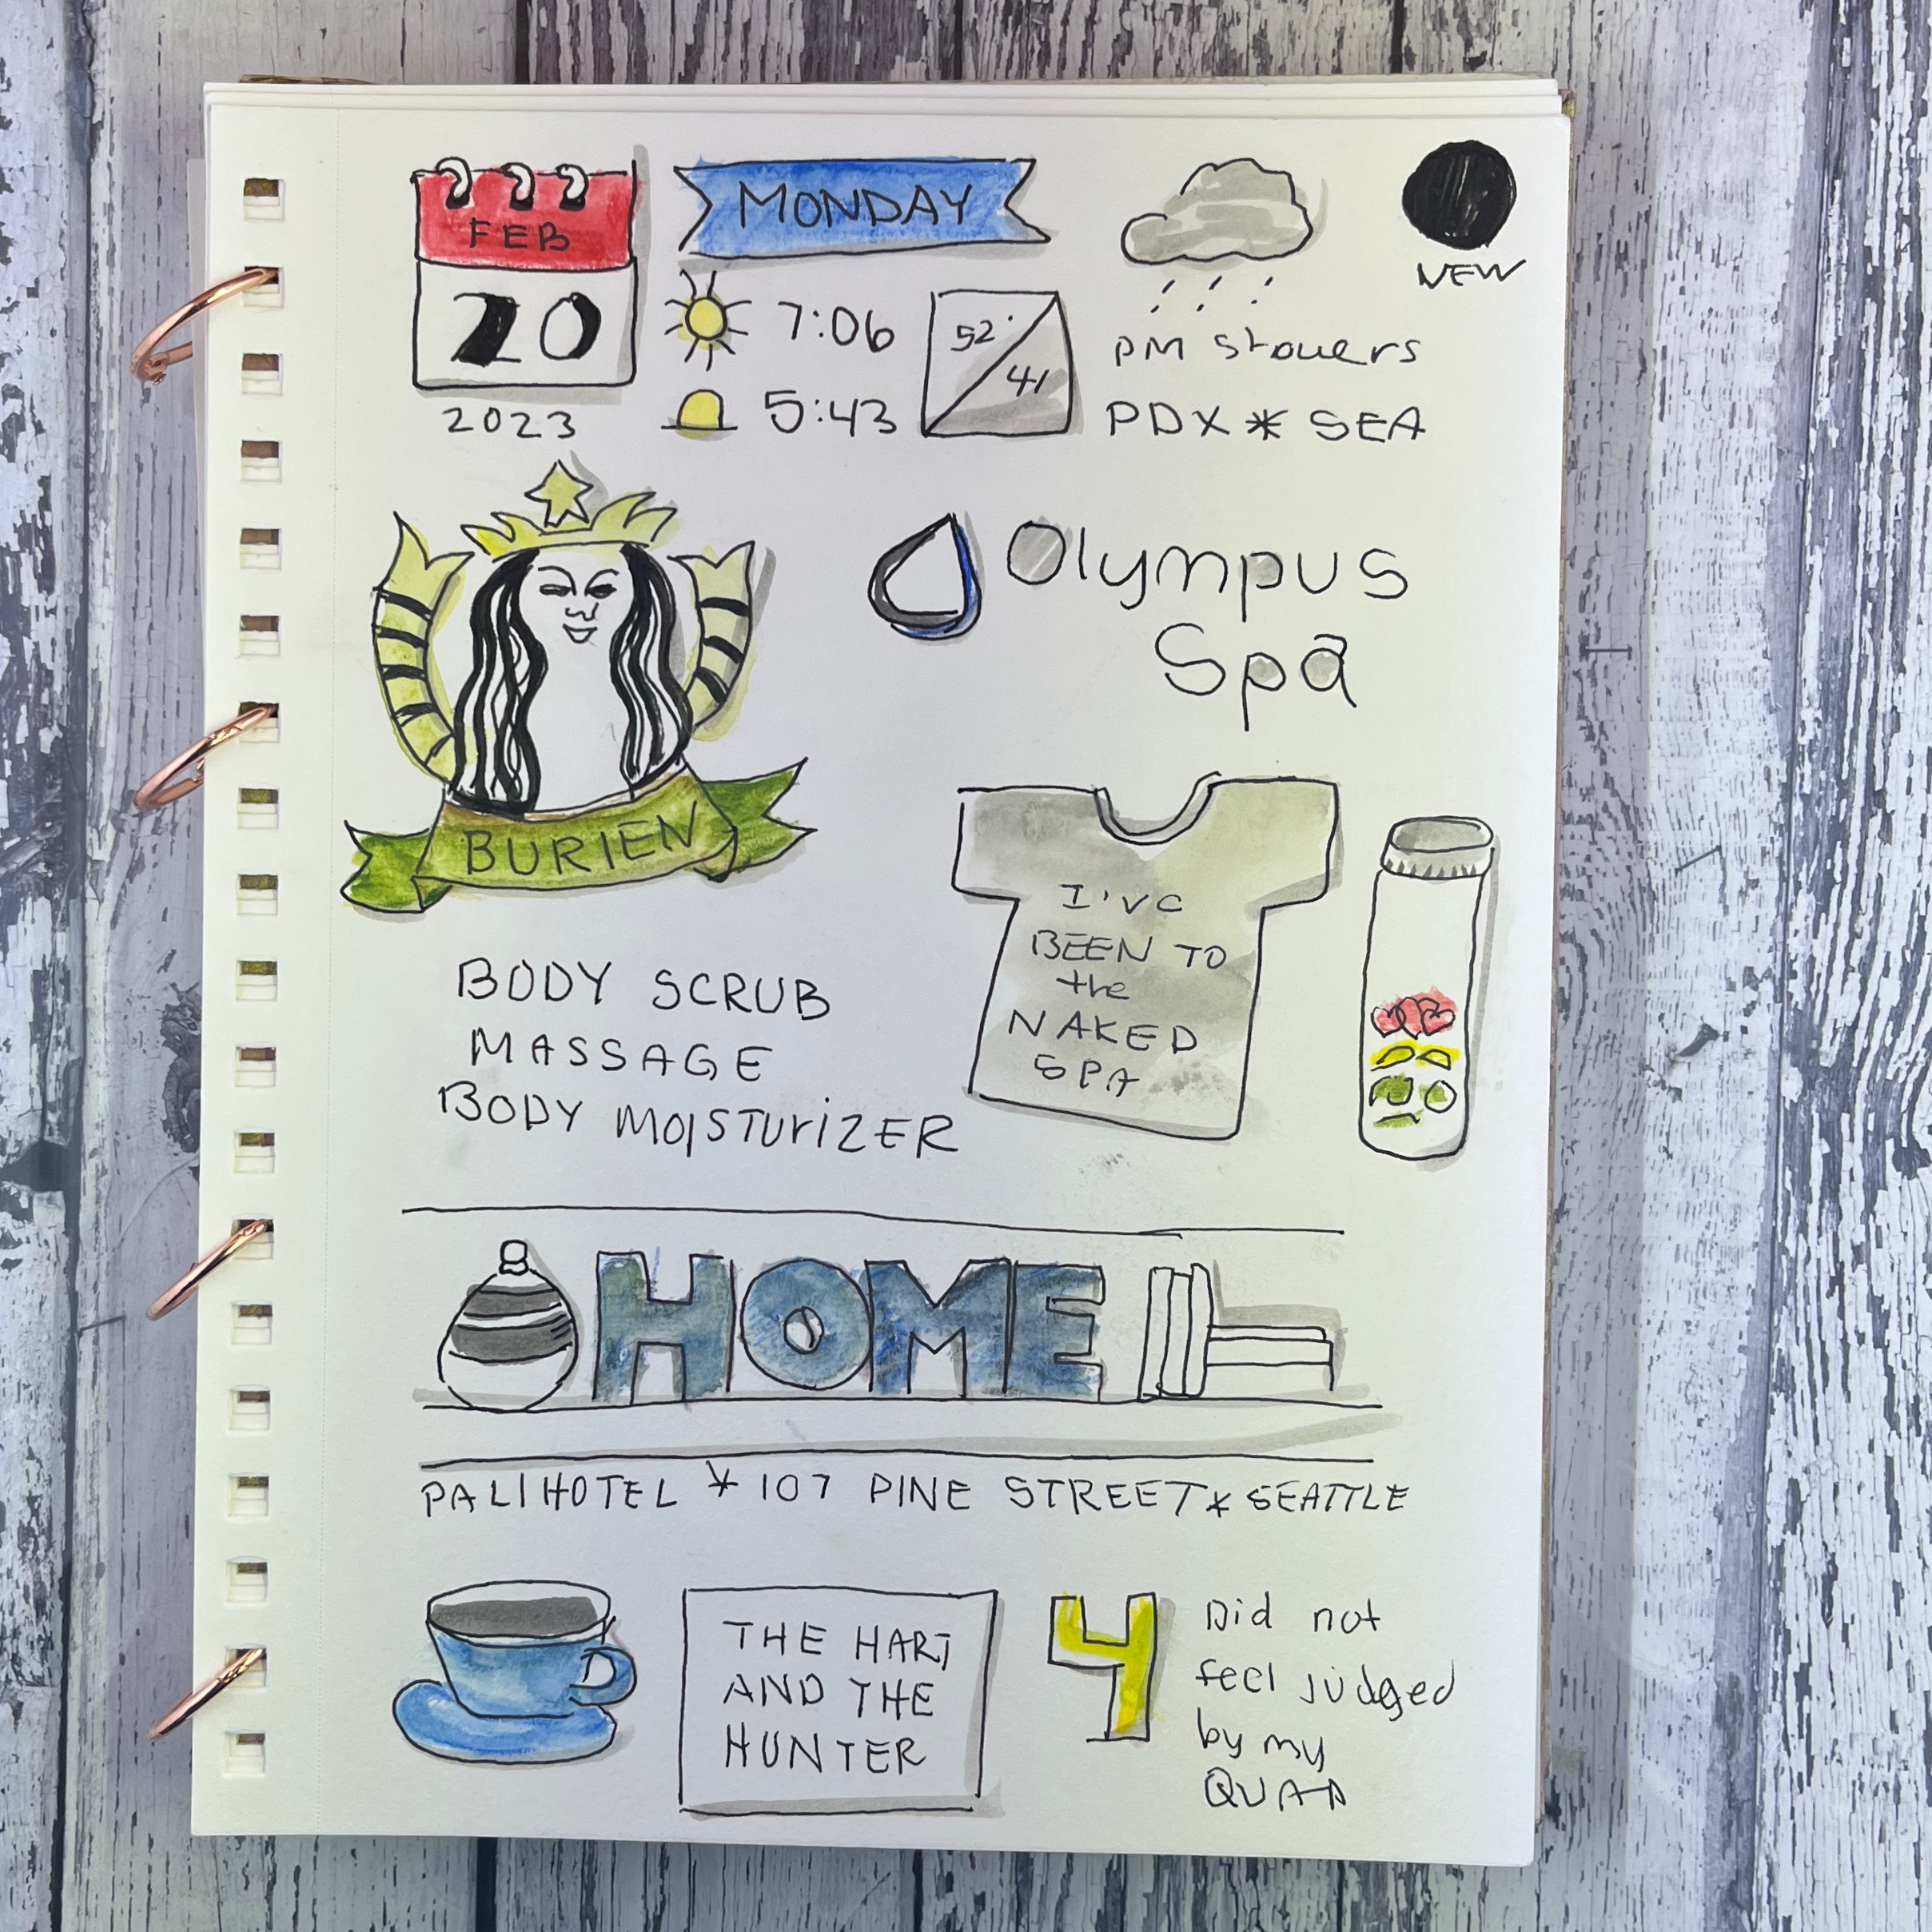 FEB
20
2023
MONDAY
7:06
5:43
52°
41
NEW
PM Showers
PDX * SEA
BURIEN
Olympus
Spa
BODY SCRUB
MASSAGE
BODY MOISTURIZER
I've
BEEN TO
the
NAKED
SPA
HOME
PALIHOTEL * 107 PINE STREET * SEATTLE
THE HART
AND THE
HUNTER
4
Did not
feel judged
by my
QUAD